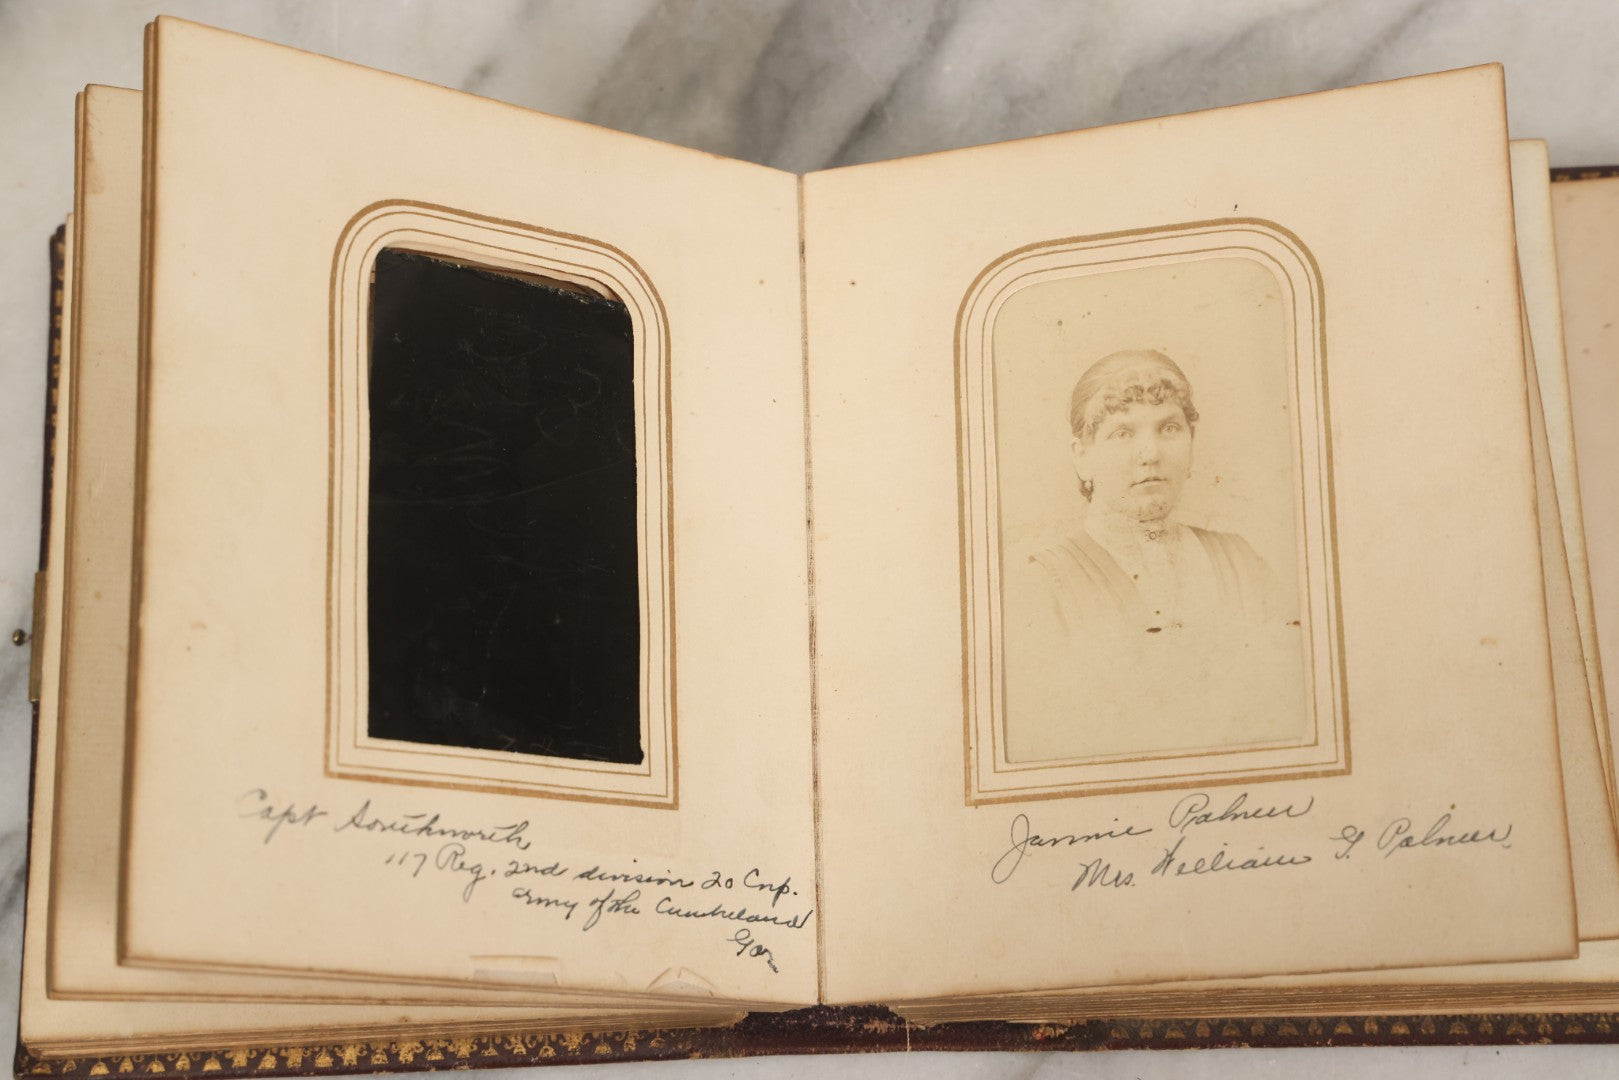 Capt Southworth
117 Reg. 2nd division 20 Corp.
army of the Cumberland
Jannie Palmer
Mrs. William G. Palmer.